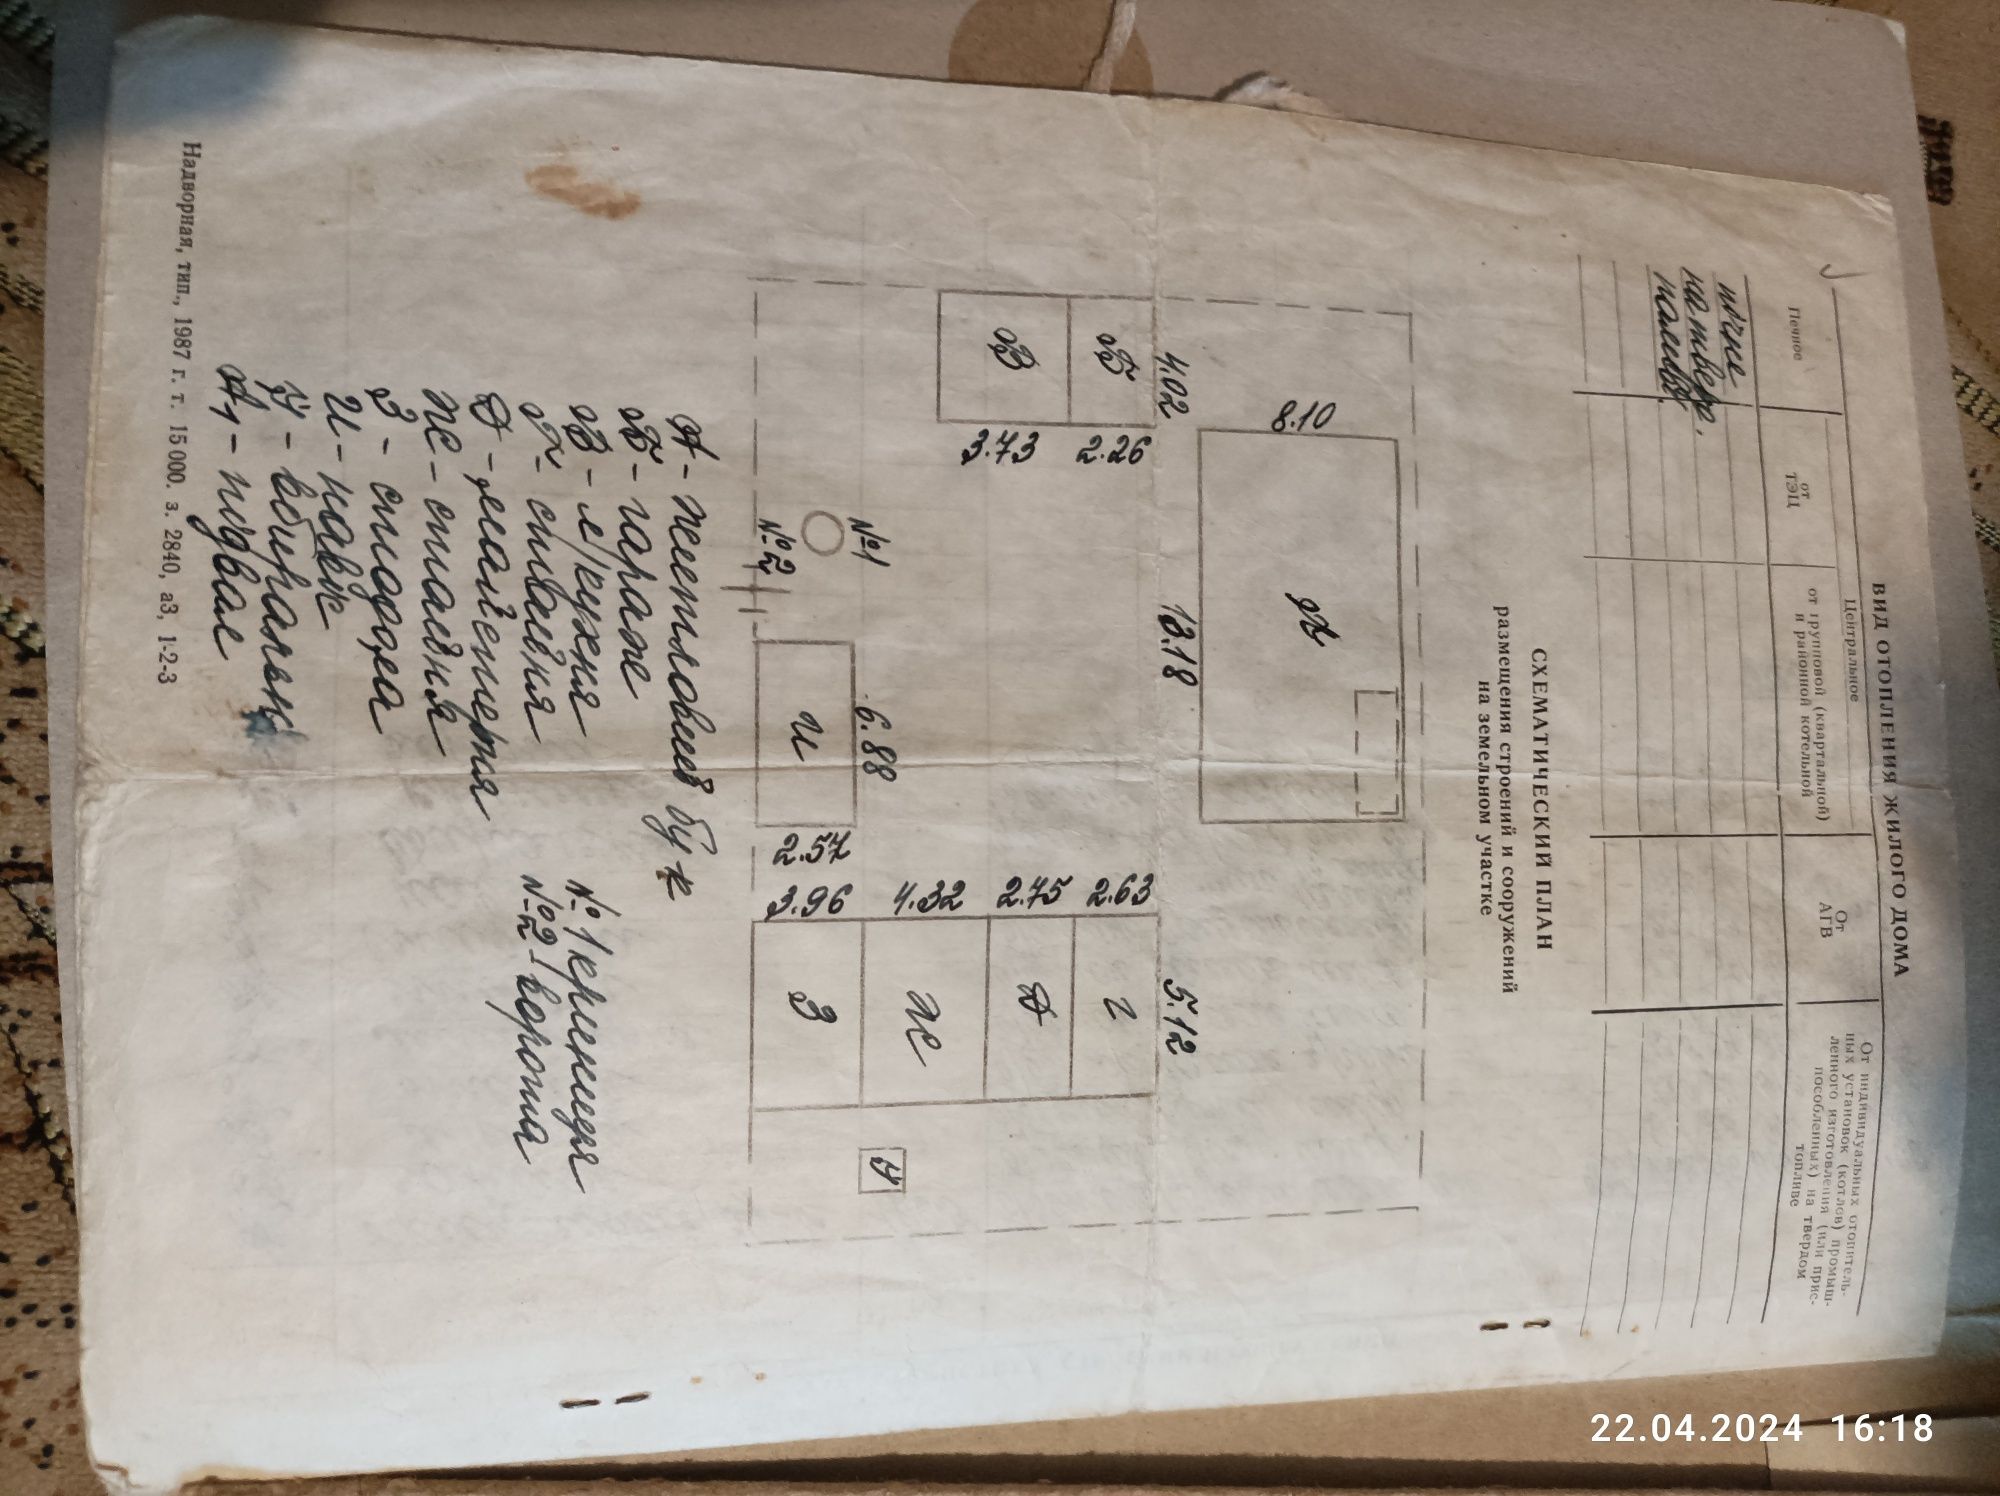 ВИД ОТОПЛЕНИЯ ЖИЛОГО ДОМА
Печное
Центральное
от
ТЭЦ
от групповой (квартальной)
и районной котельной
От
АГВ
От индивидуальных отопитель-
ных установок (котлов) промыш-
ленного изготовления (или прис-
пособленных) на твердом
топливе
пічне
на тверд.
паливо.
СХЕМАТИЧЕСКИЙ ПЛАН
размещения строений и сооружений
на земельном участке
8.10
А
4.02
13.18
5.12
Б
В
2.26
3.73
№1
№2
6.88
И
2.57
3.96
4.32
2.75
2.63
З
Ж
Д
Г
У
А - житловий бу к
Б - гараж
В - л/кухня
Г - спальня
Д - майстерня
Ж - стайня
З - стодола
И - навіс
У - вбиральн
А1 - підвал
№1 криниця
№2 - ворота
Надворная, тип., 1987 г. т. 15 000. з. 2840, а3, 1-2-3
22.04.2024 16:18